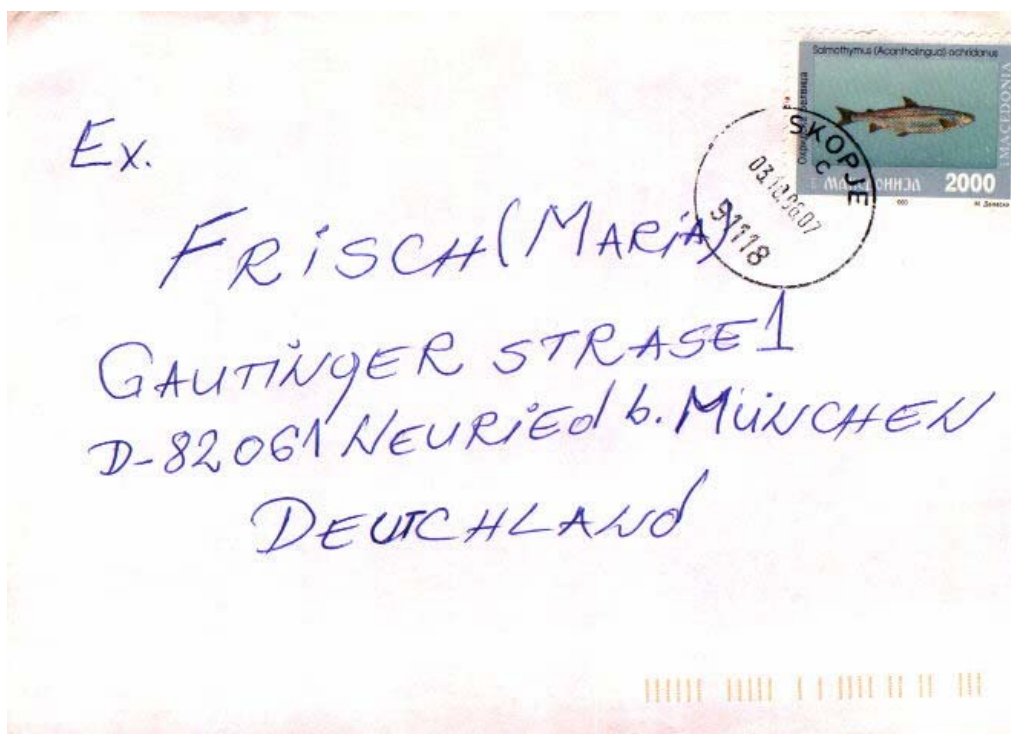 Salmothymus (Acantholingua) ochridanus
MACEDONIA
МАКЕДОНИЈА 2000
SKOPJE
C
03.10.96.07
91118
Ex.
FRISCH (MARIA)
GAUTINGER STRASE 1
D-82061 NEURIEd b. MÜNCHEN
DEUTCHLANd